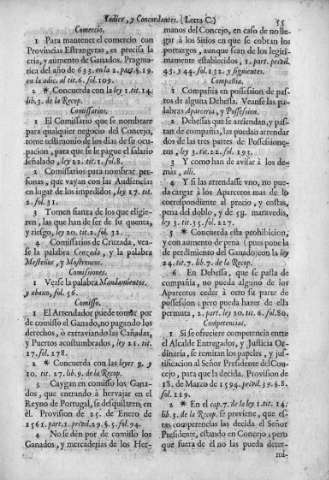 Indice, y Concordantes. (Letra C.) 55
Comercio.
1 Para mantener el comercio con
Provincias Estrangeras, es precisa la
cria, y aumento de Ganados. Pragma-
tica del año de 633. en la 2. part. §. 19.
en la adic. al tit. 6. fol. 109.
2 * Concuerda con la ley 1. tit. 14.
lib. 3. de la Recop.
Comissarios.
1 El Comissario que se nombrare
para qualquier negocio del Concejo,
tome testimonio de los dias de su ocu-
pacion, para que se le pague el salario
señalado, ley 22. tit. 2. fol. 8.
2 Comissarios para nombrar per-
sonas, que vayan con las Audiencias
en lugar de los impedidos, ley 17. tit.
2. fol. 31.
3 Tomen fianza de los que eligie-
ren, las que han de ser de su quenta,
y riesgo, ley 20. tit. fol. 32.
4 Comissarios de Cruzada, vea-
se la palabra Cruzada, y la palabra
Mesteñas, y Mostrencos.
Comissiones.
1 Vease la palabra Mandamientos.
y abaxo, fol. 56.
Comisso.
1 El Arrendador puede tomar por
de comisso el Ganado, no pagando los
derechos, ò extraviando las Cañadas,
y Puertos acostumbrados, ley 21. tit.
17. fol. 178.
2 * Concuerda con las leyes 9. y
10. tit. 17. lib. 9. de la Recop.
3 Caygan en comisso los Gana-
dos, que entrando à hervajar en el
Reyno de Portugal, se desquilaren, en
èl. Provision de 25. de Enero de
1561. part. 1. privil. 29. §. 5. fol. 94.
4 No se dèn por de comisso los
Ganados, y mercaderias de los Her-
manos del Concejo, en caso de no lle-
gar à los sitios en que se cobran los
portazgos, aunque sean de los legiti-
mamente establecidos, 1. part. privil.
45. y 44. fol. 132. y siguientes.
Compañia.
1 Compañia en possession de pas-
tos de alguna Dehessa. Veanse las pa-
labras Aparceria, y Possession.
2 Dehessas que se arriendan, y pas-
tan de compañia, las puedan arrendar
dos de las tres partes de Possessione-
ros, ley 3. tit. 22. fol. 193.
3 Y como han de avisar à los de-
màs, alli.
4 Y si las arrendasse vno, no pue-
da cargar à los Aparceros mas de lo
correspondiente al precio, y costas,
pena del doblo, y de 5y. maravedis,
ley 3. tit. 35. fol. 227.
5 * Concuerda esta prohibicion,
y con aumento de pena (pues pone la
de perdimiento del Ganado) con la ley
24. tit. 7. lib. 7. de la Recop.
6 En Dehessa, que se pasta de
compañia, no pueda alguno de los
Aparceros ceder à otro su parte de
possession; pero pueda hazer de ella
permuta, 2. part. ley 20. tit. 6. fol. 80.
Competencias.
1 Si se ofreciere competencia entre
el Alcalde Entregador, y Justicia Or-
dinaria, se remitan los papeles, y jus-
tificacion al Señor Presidente del Con-
cejo, para que la decida. Provision de
18. de Marzo de 1594. privil. 29. §. 8.
fol. 119.
2 * En el cap. 7. de la ley 1. tit. 14.
lib. 3. de la Recop. se previene, que es-
tas competencias las decida el Señor
Presidente, estando en Concejo; pero
que fuera de èl no las pueda deter-
mi-